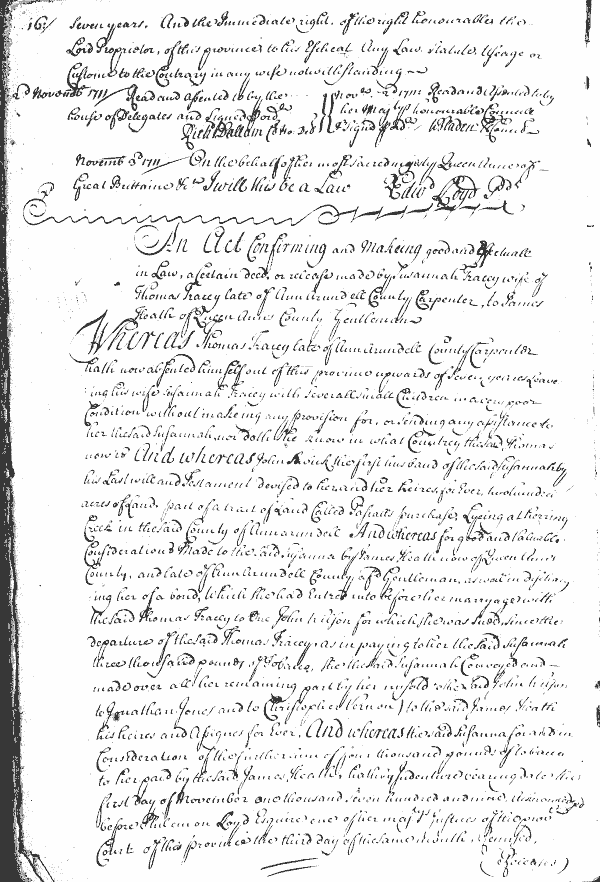 167
Seven years. And the Immediate right, of the right honourable the
Lord Proprietor, of this province to his Escheat Any Law, Statute, Useage or
Custome to the Contrary in any wise notwithstanding
2d Novemb 1711 Read and assented to by the
house of Delegates and signed
Richd Dallam Cl: Ho: D:
Novr 2d 1711 Read and assented to by
her majtys honourable Councill
& signd W Bladen Cl Council
Novemb 3d 1711 On the behalf of her most sacred majesty Queen Anne of
Great Brittaine &c I will this be a Law Edwd Loyd Pdt
An Act Confirming and Makeing good and Effectuall
in Law, a Certain deed, or release made by Susannah Tracey wife of
Thomas Tracey late of Ann Arundell County Carpenter, to James
Heath of Queen Anns County Gentleman
Whereas Thomas Tracey late of Annarundell County Carpenter
hath now absented himself out of this province upwards of Seven yeares Leave
ing his wife Susannah Tracey with severall small Children in a very poor
Condition without makeing any provision for, or sending any assistance to
her the said Susannah, nor doth she know in what Countrey the said Thomas
now is And whereas John the first husband of the said Susannah by
his Last will and Testament devised to her and her heires for Ever, two hundred
acres of Land, part of a tract of Land Called purchase, Lyeing at herring
Creek in the said County of Annarundell And whereas for good and valuable
Considerations Made to the said Susanna by James Heath now of Queen Anns
County, and late of Ann Arundell County Gentleman, as well in dischargi
ing her of a bond, which she had Entred into before her marryage with
the said Thomas Tracey to One John Wilson for which she was sued since the
departure of the said Thomas Tracey, as in paying to her the said Susannah
three thousand pounds of Tobacco, she the said Susannah Conveyed and
made over all her remaining part by her unsold the said John Wilson
to Jonathan Jones and to Christopher Vernon) to the said James Heath
his heires and Assignes for Ever, And whereas the said Susanna for and in
Consideration of the further sum of four thousand pounds of tobacco
to her paid by the said James Heath, hath by Indenture bearing date the
first day of November one thousand seven hundred and nine, Acknowledged
before Philemon Loyd Esquire one of her majtys Justices of the prov
Court of this province the third day of the same month, Remised,
(Releases)